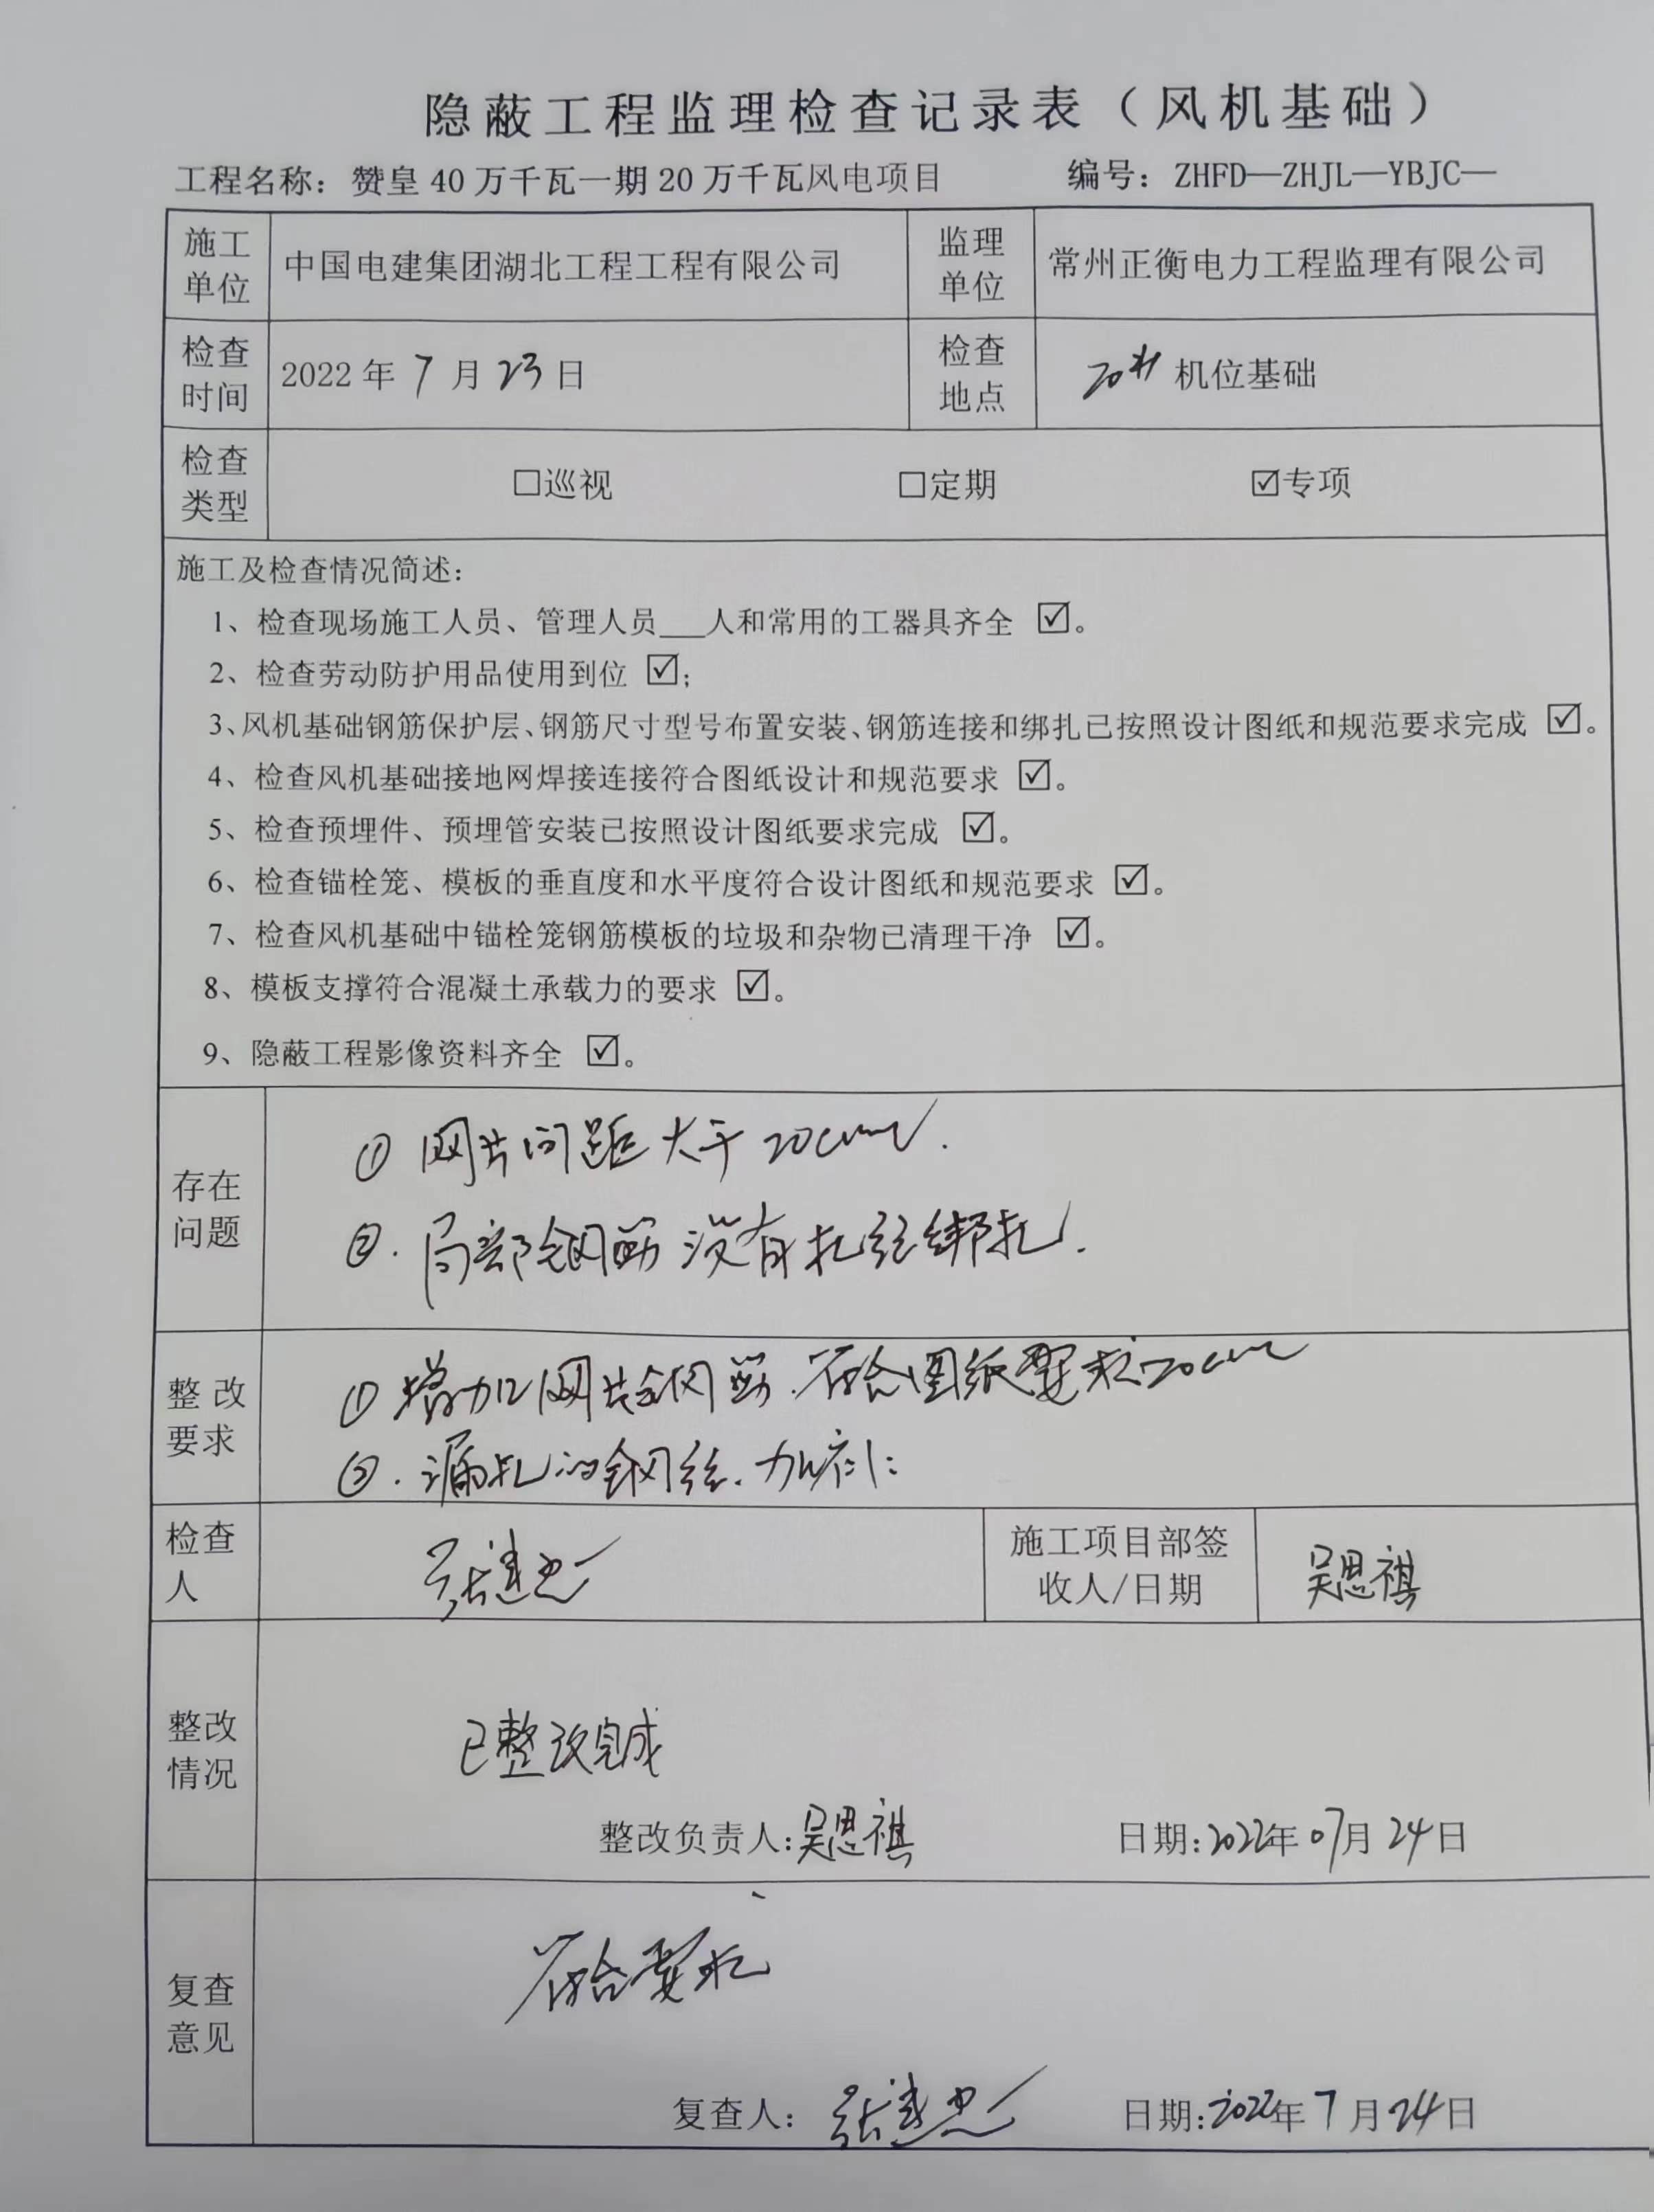 隐蔽工程监理检查记录表（风机基础）
工程名称：赞皇40万千瓦一期20万千瓦风电项目 编号：ZHFD—ZHJL—YBJC—
施工单位 中国电建集团湖北工程工程有限公司 监理单位 常州正衡电力工程监理有限公司
检查时间 2022年7月23日 检查地点 20# 机位基础
检查类型 □巡视 □定期 ☑专项
施工及检查情况简述：
1、检查现场施工人员、管理人员___人和常用的工器具齐全 ☑。
2、检查劳动防护用品使用到位 ☑；
3、风机基础钢筋保护层、钢筋尺寸型号布置安装、钢筋连接和绑扎已按照设计图纸和规范要求完成 ☑。
4、检查风机基础接地网焊接连接符合图纸设计和规范要求 ☑。
5、检查预埋件、预埋管安装已按照设计图纸要求完成 ☑。
6、检查锚栓笼、模板的垂直度和水平度符合设计图纸和规范要求 ☑。
7、检查风机基础中锚栓笼钢筋模板的垃圾和杂物已清理干净 ☑。
8、模板支撑符合混凝土承载力的要求 ☑。
9、隐蔽工程影像资料齐全 ☑。
存在问题
① 网片间距大于20cm.
②. 局部钢筋没有扎丝绑扎.
整改要求
① 增加网片钢筋.符合图纸要求20cm
②. 漏扎的钢丝.
检查人 张建忠 施工项目部签收人/日期 吴思祺
整改情况
已整改完成
整改负责人:吴思祺 日期:2022年07月24日
复查意见
符合要求
复查人：张建忠 日期:2022年7月24日